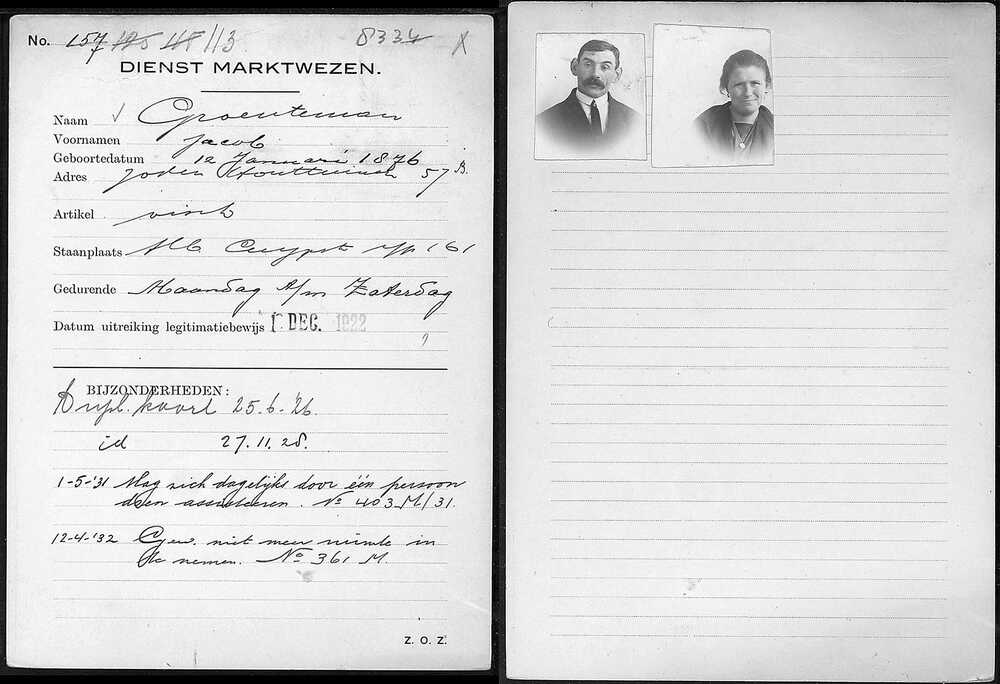 No. 157 125 115 113 8334 X
DIENST MARKTWEZEN.
Naam Groenteman
Voornamen Jacob
Geboortedatum 12 Januari 1876
Adres Joden Houttuinen 57 B.
Artikel visch
Staanplaats Alb Cuypst 161
Gedurende Maandag t/m Zaterdag
Datum uitreiking legitimatiebewijs 1 DEC. 1922
BIJZONDERHEDEN:
Dupl. kaart 25.6.'26.
id 27.11.28.
1-5-'31 Mag zich dagelijks door één persoon
doen assisteeren. No 403 M/31.
12-4-'32 Gew. niet meer ruimte in
te nemen. No 361 M.
Z. O. Z.